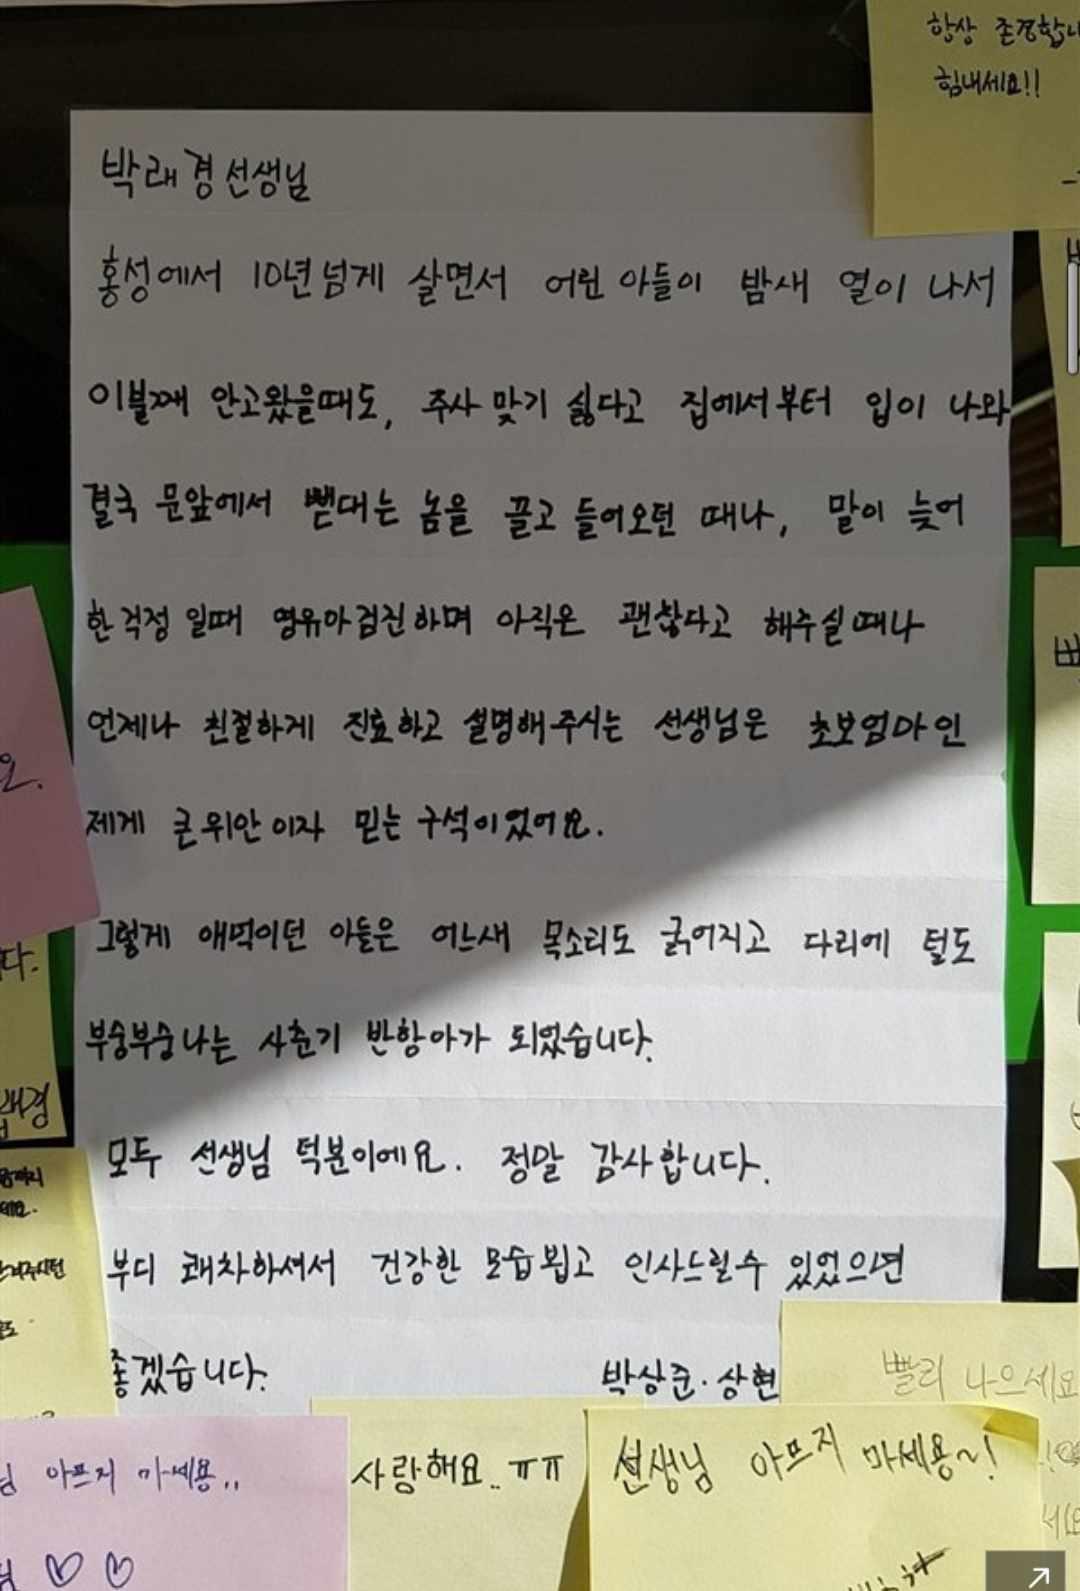 항상 존경합니
힘내세요!!
박래경 선생님
홍성에서 10년넘게 살면서 어린 아들이 밤새 열이 나서
이불째 안고왔을때도, 주사 맞기 싫다고 집에서부터 입이 나와
결국 문앞에서 뻗대는 놈을 끌고 들어오던 때나, 말이 늦어
한 걱정 일때 영유아검진하며 아직은 괜찮다고 해주실때나
언제나 친절하게 진료하고 설명해주시는 선생님은 초보엄마인
제게 큰 위안이자 믿는 구석이었어요.
그렇게 애먹이던 아들은 어느새 목소리도 굵어지고 다리에 털도
부숭부숭나는 사춘기 반항아가 되었습니다.
모두 선생님 덕분이에요. 정말 감사합니다.
부디 쾌차하셔서 건강한 모습뵙고 인사드릴수 있었으면
좋겠습니다.
박상준·상현
빨리 나으세요
님 아프지 마세용..
사랑해요..ㅠㅠ
선생님 아프지 마세용~!